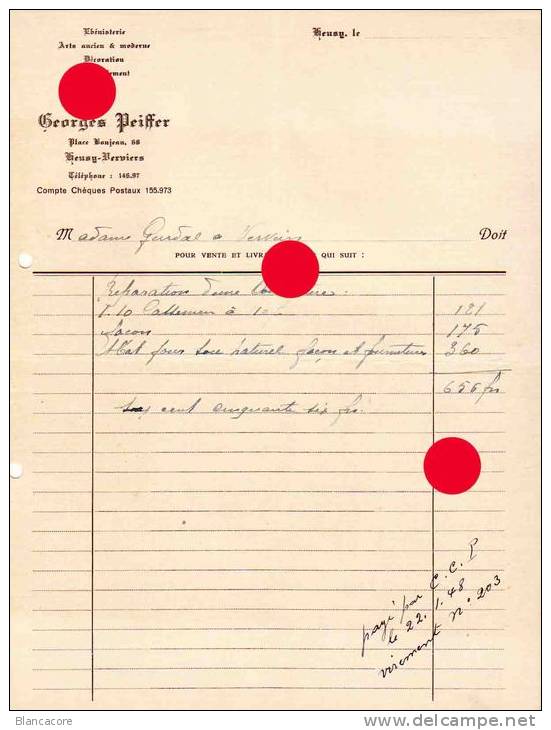 Ebénisterie
Arts ancien & moderne
Décoration
Georges Peiffer
Place Bonjean, 66
Heusy-Verviers
Téléphone : 146.97
Compte Chèques Postaux 155.973
Heusy, le
Madame Gurdal a Verviers Doit
POUR VENTE ET LIVR QUI SUIT :
Reparation d'une :
à 121
façon 175
pour naturel façon et fournitures 360
656 frs
six cent cinquante six frs.
payé par C.C.P
le 22.1.48
virement N° 203
Blancacore
www.delcampe.net